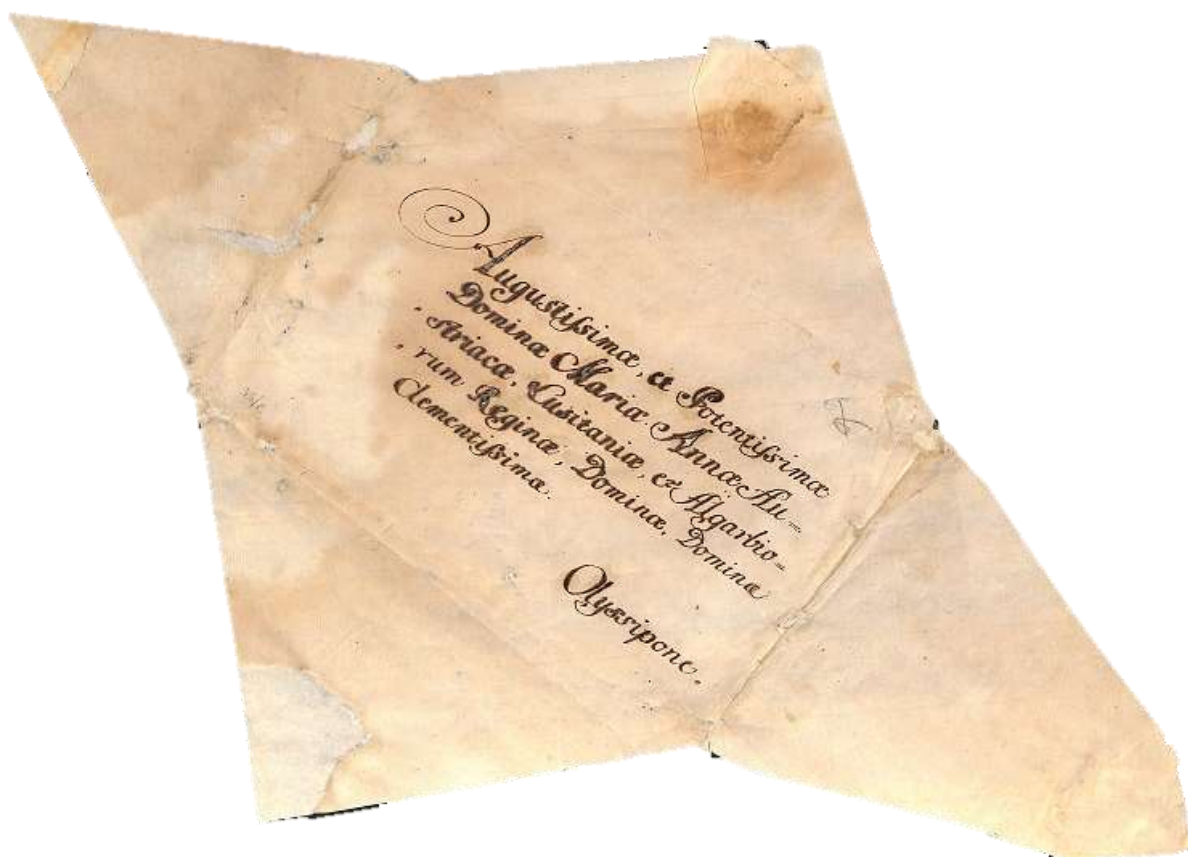 Augustissimæ, et Potentissimæ
Dominæ Mariæ Annæ Au=
striacæ, Lusitaniæ, et Algarbio=
rum Reginæ, Dominæ, Dominæ
Clementissimæ.
Olyssipone.